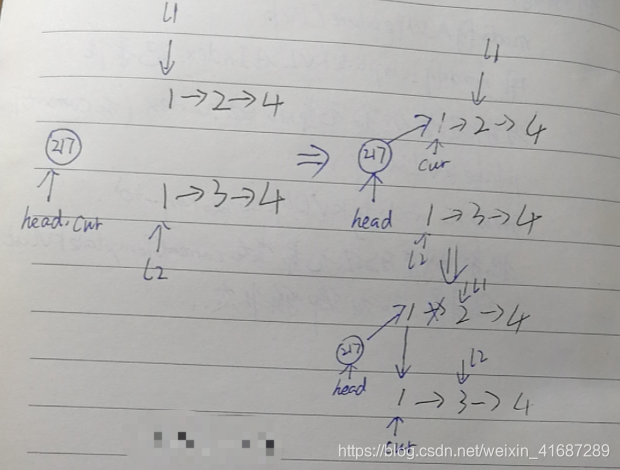 L1
1→2→4
217
head.cur
1→3→4
L2
⇒
L1
1→2→4
217
cur
head
1→3→4
L2
⇓
L1
1→2→4
217
head
L2
1→3→4
cur
https://blog.csdn.net/weixin_41687289